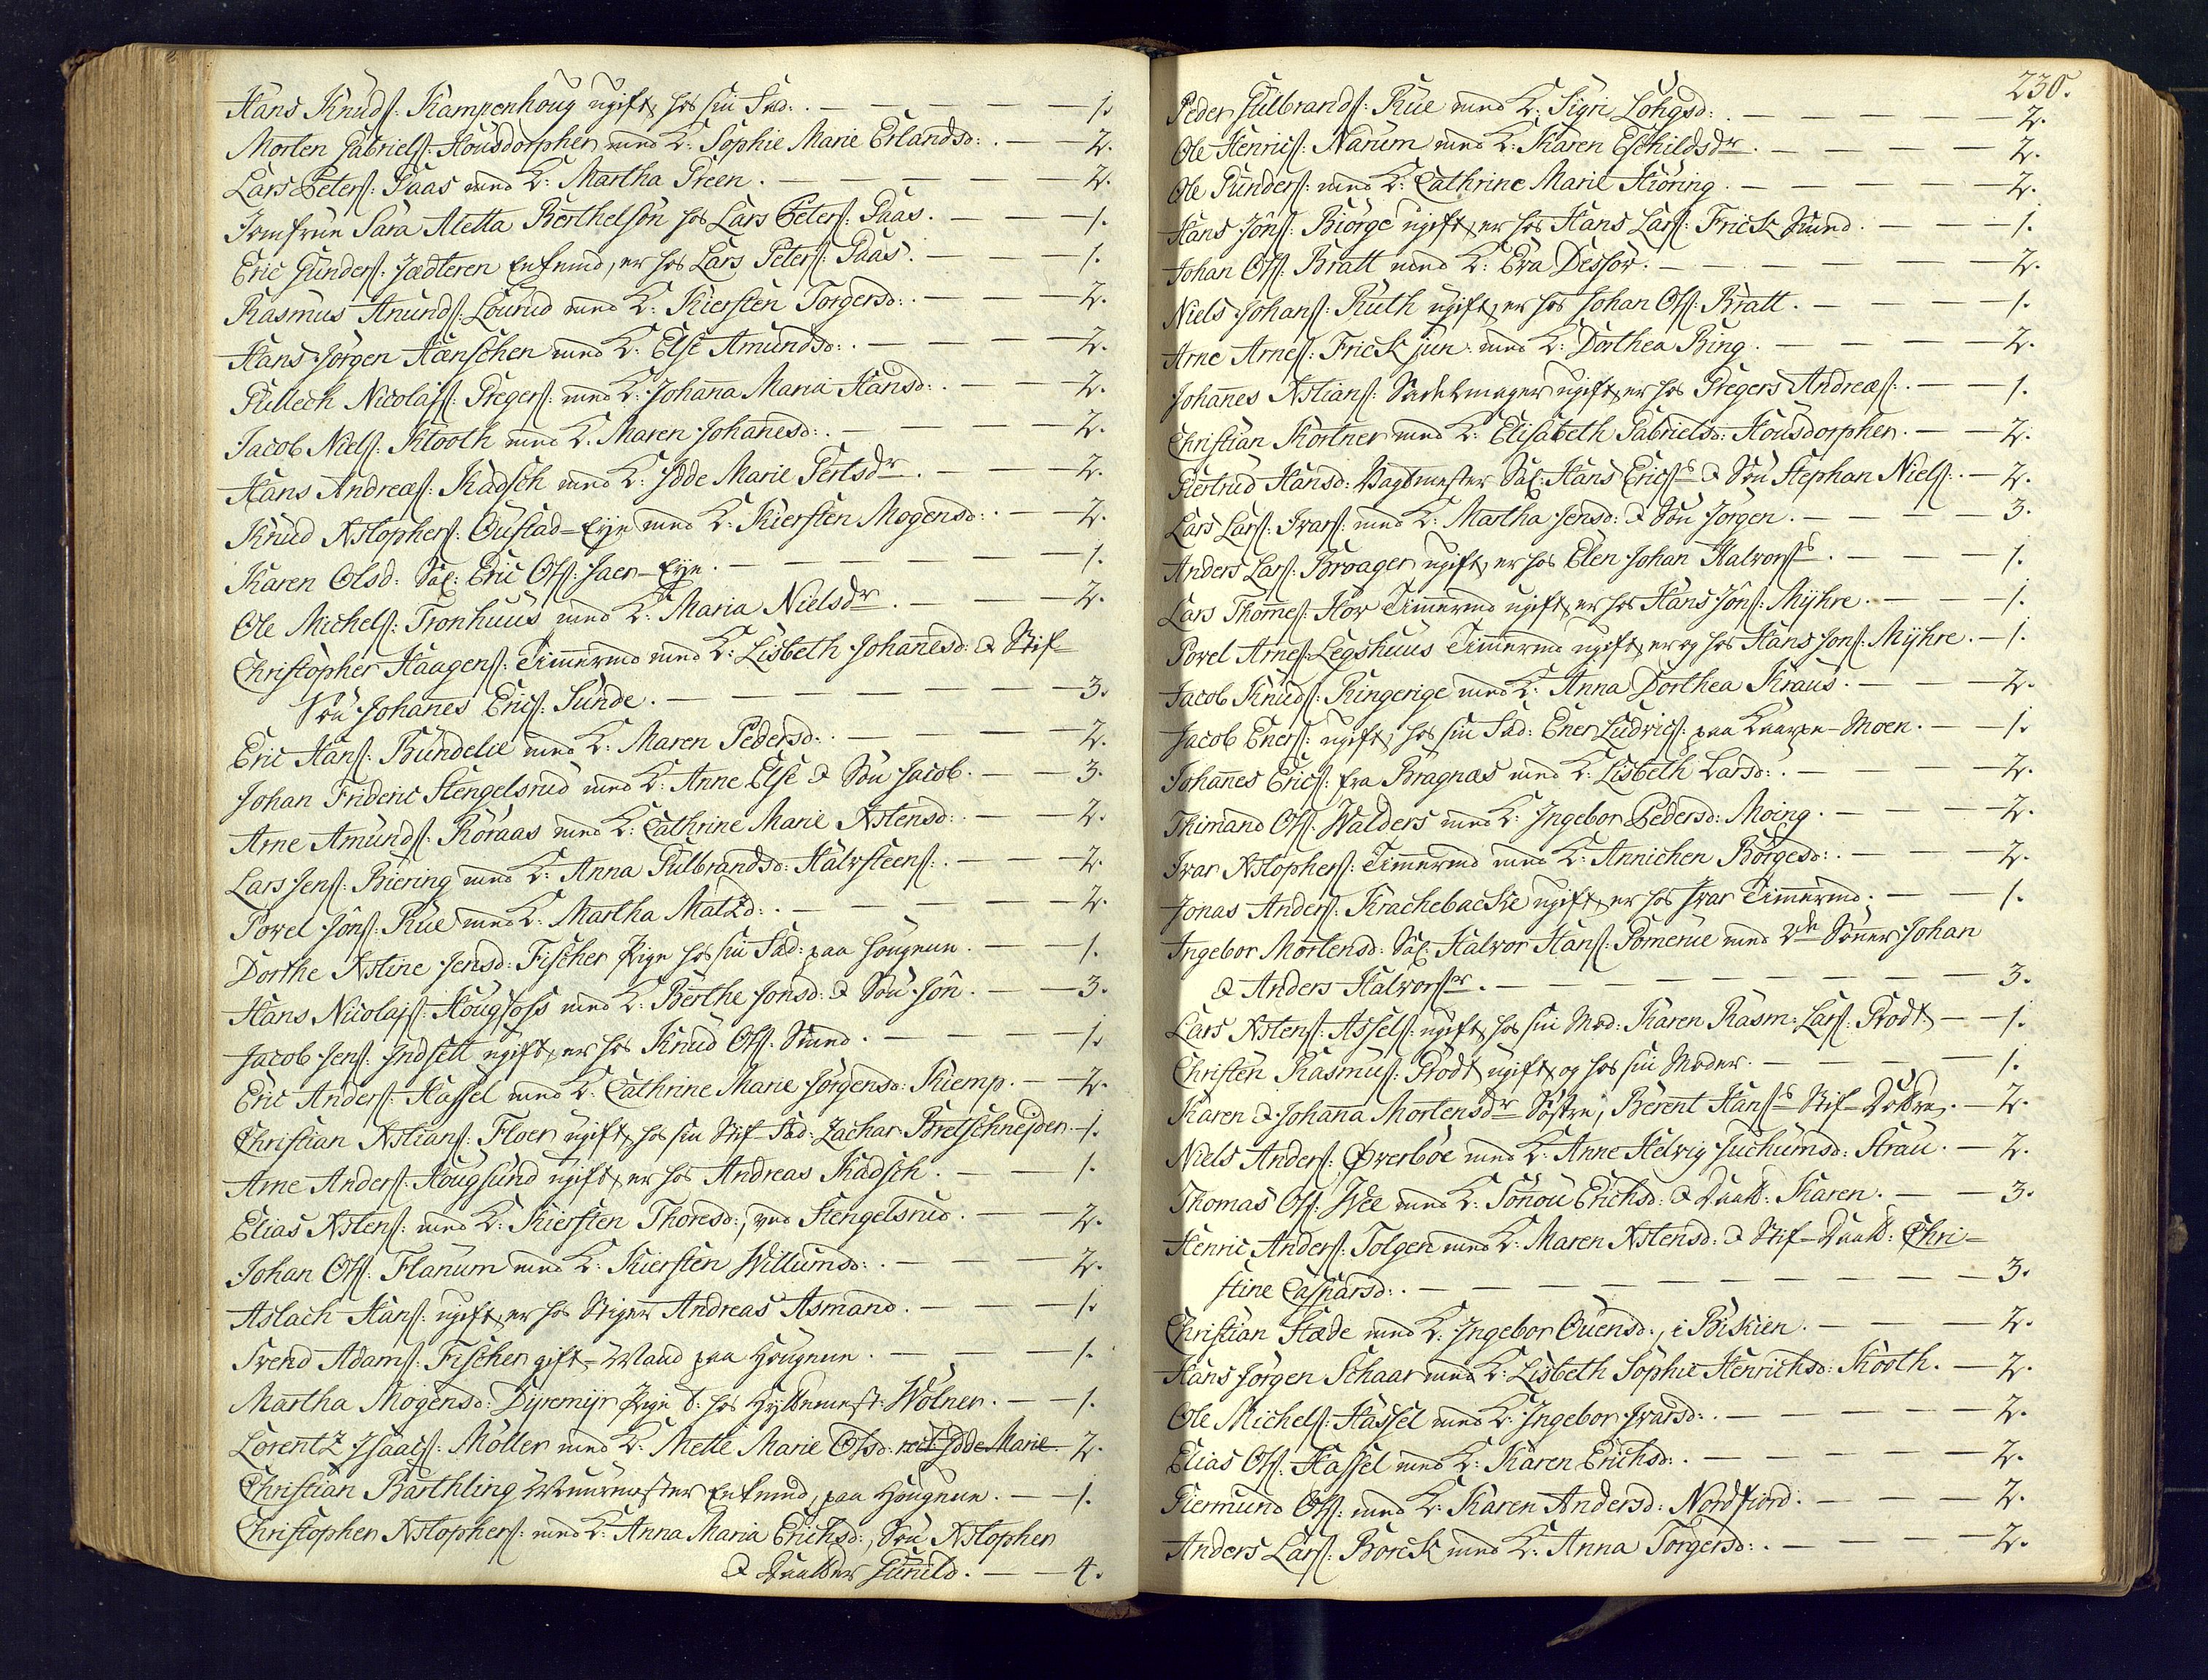 Hans Knuds: Kampenhoug ugift, hos sin Fad: . — — — — — 1.
Morten Gabriels: Housdorpher med K: Sophie Marie Erlandsd: . — — 2.
Lars Peters: Gaas med K: Martha Green . — — — — 2.
Jomfrue Sara Aletta Berthelsön hos Lars Peters: Gaas . — — — 1.
Eric Gunders: Jædteren Enkemd, er hos Lars Peters: Gaas . — — — 1.
Rasmus Anunds: Lourud med K: Kiersten Torgersd: . — — — 2.
Hans Jörgen Hænschen med K: Else Amundsd: . — — — 2.
Gullech Nicolajs: Gregers: med K: Johana Maria Hansd: . — — 2.
Jacob Niels: Klooth med K. Maren Johanesd: . — — — 2.
Hans Andreæs: Kadsch med K: Idde Marie Gertsdr . — — 2.
Knud Xstophers: Oustad-Eye med K: Kiersten Mogensd: . — 2.
Karen Olsd: Sal: Eric Ols: Jaer-Eye . — — — — 1.
Ole Michels: Tronhuus med K: Maria Nielsdr . — — — 2.
Christopher Haagens: Timermd med K: Lisbeth Johanesd: & Stif-
Sön Johanes Erics: Sunde . — — — — — — 3.
Eric Hans: Bundelie med K: Maren Pedersd: . — — — 2.
Johan Frideric Stengelsrud med K: Anne Else & Sön Jacob . — — 3.
Arne Amunds: Röraas med K: Cathrine Marie Xstensd: . — — 2.
Lars Jens: Biering med K: Anna Gulbrandsd: Halvsteens: . — — 2.
Povel Jöns: Rue med K: Martha Matzd: . — — — — 2.
Dorthe Xstine Jensd: Fischer Pige hos sin Fad: paa Hougene . — — 1.
Hans Nicolajs: Hougfoss med K: Berthe Jonsd: & Sön Jön . — — 3.
Jacob Jens: Indsett ugift, er hos Knud Ols: Smed . — — — 1.
Eric Anders: Hassel med K: Cathrine Marie Jörgensd: Kiemp . — 2.
Christian Xstians: Floer ugift, hos sin Stif-Fad: Zachar: Bretschnejder . — 1.
Arne Anders: Hougsund ugift, er hos Andreas Kadsch . — — 1.
Elias Xstens: med K: Kiersten Thoresd:, ved Stengelsrud . — — 2.
Johan Ols: Flanum med K: Kiersten Willumsd: . — — — 2.
Aslach Hans: ugift, er hos Stiger Andreas Asmand . — — — 1.
Svend Adams: Fischer gift-Mand paa Hougene . — — — 1.
Martha Mogensd: Dyremyr Pige t: hos Hyttemest: Wölner . — — 1.
Lorentz Isaacs: Möller med K: Mette Marie Olsd: Idde Marie — 2.
Christian Barthling Muurmester Enkemd, paa Hougene . — — 1.
Christopher Xstophers: med K: Anna Maria Erichsd:, Sön Xstopher
& Daatter Gunild . — — 4.
230.
Peder Gulbrands: Rue med K: Sigri Lohgsd: . — — — — — 2.
Ole Henrics: Narum med K: Karen Eschildsdr . — — — — 2.
Ole Gunders: med K: Cathrine Marie Kiöring . — — — — 2.
Hans Jöns: Biörge ugift, er hos Hans Lars: Frick Smed . — — 1.
Johan Ols: Bratt med K: Eva Dessör . — — — — — 2.
Niels Johans: Ruth ugift, er hos Johan Ols: Bratt . — — — 1.
Arne Arnes: Frick jun: med K: Dorthea Bing . — — — — 2.
Johanes Xstians: Sadelmager ugift, er hos Gregers Andreæs: . — — 1.
Christian Kortner med K: Elisabeth Gabrielsd: Housdorpher . — — 2.
Giertrud Hansd: Vagtmester Sal: Hans Erics & Sön Stephan Niels: . — 2.
Lars Lars: Ivars: med K: Martha Jensd: & Sön Jörgen . — — — 3.
Anders Lars: Broager ugift, er hos Elen Johan Halvors . — — — 1.
Lars Thomes: Hov Timermd ugift, er hos Hans Jöns: Myhre . — — 1.
Povel Arnes: Legshuus Timermd ugift, er og hos Hans Jons: Myhre . — 1.
Jacob Knuds: Ringerige med K: Anna Dorthea Kraus . — — — 2.
Jacob Eners: ugift, hos sin Fad: Ener Ludvics: paa Knarpe-Moen . — — 1.
Johanes Erics: fra Bragnæs med K: Lisbeth Larsd: . — — — 2.
Thimand Ols: Walders med K: Ingebor Pedersd: Moing . — — — 2.
Ivar Xstophers: Timermd med K: Annichen Börgesd: . — — — 2.
Jonas Anders: Krachebacke ugift, er hos Ivar Timermd . — — — 1.
Ingebor Mortensd: Sal: Halvor Hans: Gomerue med 2de Sönner Johan
& Anders Halvors . — — — — — — — 3.
Lars Xstens: Assels: ugift, hos sin Mod: Karen Rasm: Lars: Grodt — — 1.
Christen Rasmus: Grodt ugift, og hos sin Moder . — — — 1.
Karen & Johanna Mortensdr Söstre, Berent Hans Stif-Döttre . — 2.
Niels Anders: Överböe med K: Anne Helvig Juchumsd: Strau . — 2.
Thomas Ols: Wee med K: Gönou Erichsd: & Daatt: Karen . — — 3.
Henric Anders: Tolgen med K: Maren Xstensd: & Stif-Daatt: Chri-
stine Caspärsd: . — — — — — — — — 3.
Christian Stæde med K: Ingebor Ouensd:, i Biskien . — — — 2.
Hans Jörgen Schaar med K: Lisbeth Sophie Henrichsd: Klooth . — 2.
Ole Michels: Hassel med K: Ingebor Ivarsd: . — — — — — 2.
Elias Ols: Hassel med K: Karen Erichsd: . — — — — — 2.
Giermund Ols: med K: Karen Andersd: Nordfiord . — — — 2.
Anders Lars: Borck med K: Anna Torgersd: . — — — — 2.